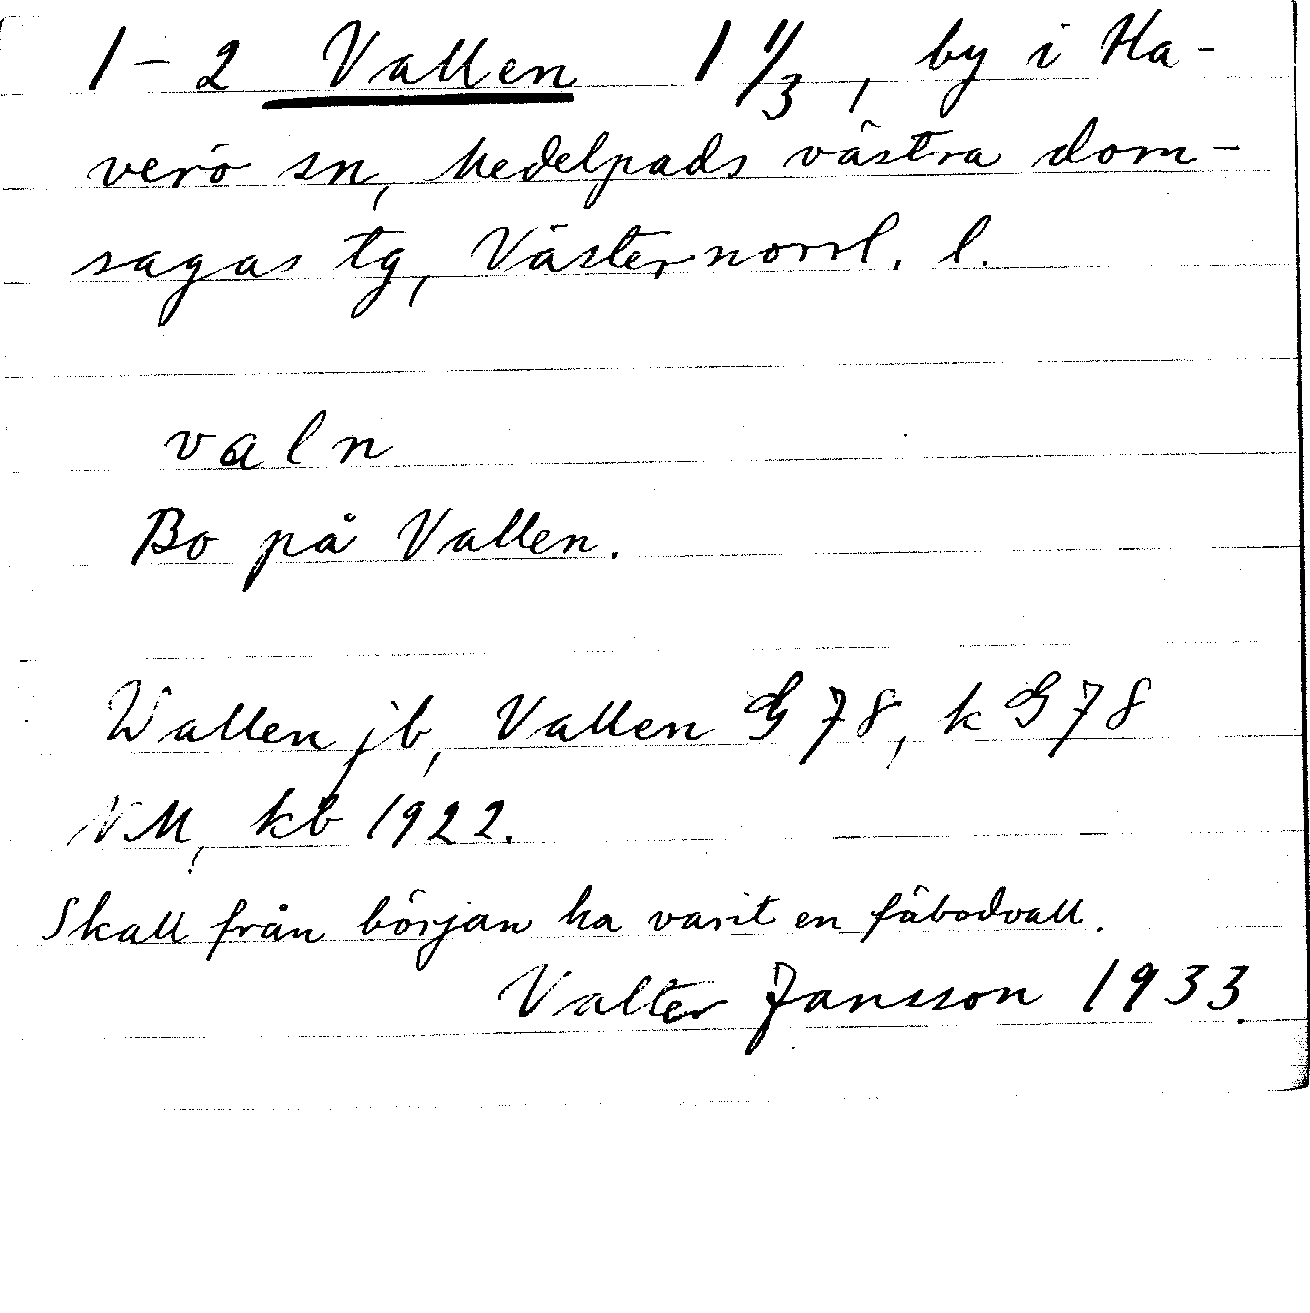 1-2 Vallen 1 1/3, by i Ha-
verö sn, Medelpads västra dom-
sagas tg, Västernorrl. l.
valn
Bo på Vallen.
Wallen jb, Vallen G 78, k G 78
NM, kb 1922.
Skall från början ha varit en fäbodvall.
Valter Jansson 1933.